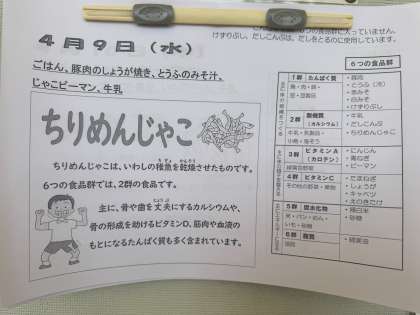 4月9日（水）
ごはん、豚肉のしょうが焼き、とうふのみそ汁、
じゃこピーマン、牛乳
ちりめんじゃこ
ちりめんじゃこは、いわしの稚魚を乾燥させたものです。
6つの食品群では、2群の食品です。
主に、骨や歯を丈夫にするカルシウムや、
骨の形成を助けるビタミンD、筋肉や血液の
もとになるたんぱく質も多く含まれています。
6つの食品群に入っていません。
けずりぶし、だしこんぶは、だしをとるのに使用しています。
6つの食品群
1群 たんぱく質
魚・肉・卵・
豆・豆製品
・豚肉
・とうふ（冷）
・赤みそ
・白みそ
・けずりぶし
2群 無機質
（カルシウム）
牛乳・乳製品・
小魚・海そう
・牛乳
・だしこんぶ
・ちりめんじゃこ
3群 ビタミンA
（カロテン）
緑黄色野菜
・にんじん
・青ねぎ
・ピーマン
4群 ビタミンC
その他の野菜・果物
・たまねぎ
・しょうが
・キャベツ
・えのきたけ
5群 炭水化物
米・パン・めん・
いも・砂糖
・精白米
・砂糖
6群 脂質
油脂
・綿実油